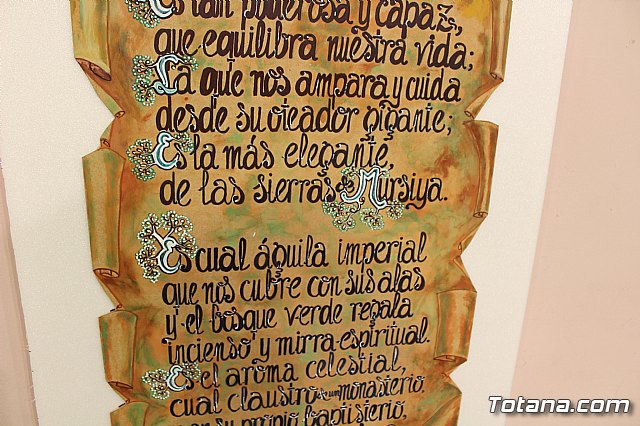 Es tan poderosa y capaz,
que equilibra nuestra vida;
La que nos ampara y cuida
desde su oteador gigante;
Es la más elegante,
de las sierras de Mursiya.
Es cual águila imperial
que nos cubre con sus alas
y el bosque verde regala
incienso y mirra espiritual.
Es el aroma celestial,
cual claustro de un monasterio
su propio baptisterio,
www.totana.com
Totana.com